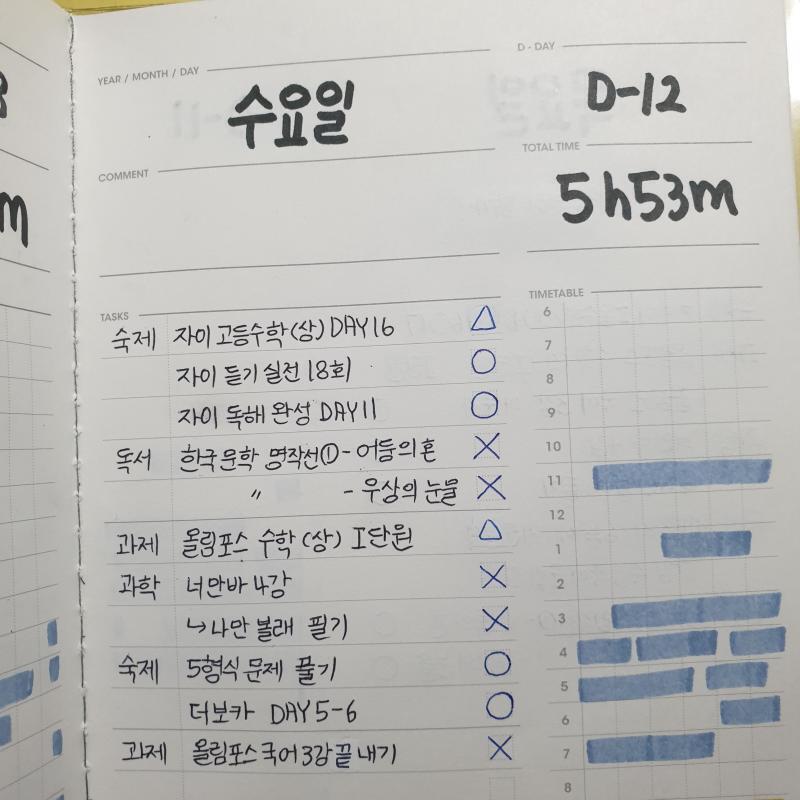 YEAR / MONTH / DAY
수요일
D - DAY
D-12
COMMENT
TOTAL TIME
5h53m
TASKS
숙제 자이 고등수학(상) DAY16 △
자이 듣기 실전 18회 ○
자이 독해 완성 DAY11 ○
독서 한국문학 명작선① - 어둠의 혼 ×
〃 - 우상의 눈물 ×
과제 올림포스 수학 (상) I단원 △
과학 너만바 4강 ×
↳나만 볼래 필기 ×
숙제 5형식 문제 풀기 ○
더보카 DAY 5-6 ○
과제 올림포스 국어 3강 끝내기 ×
TIMETABLE
6
7
8
9
10
11
12
1
2
3
4
5
6
7
8
m